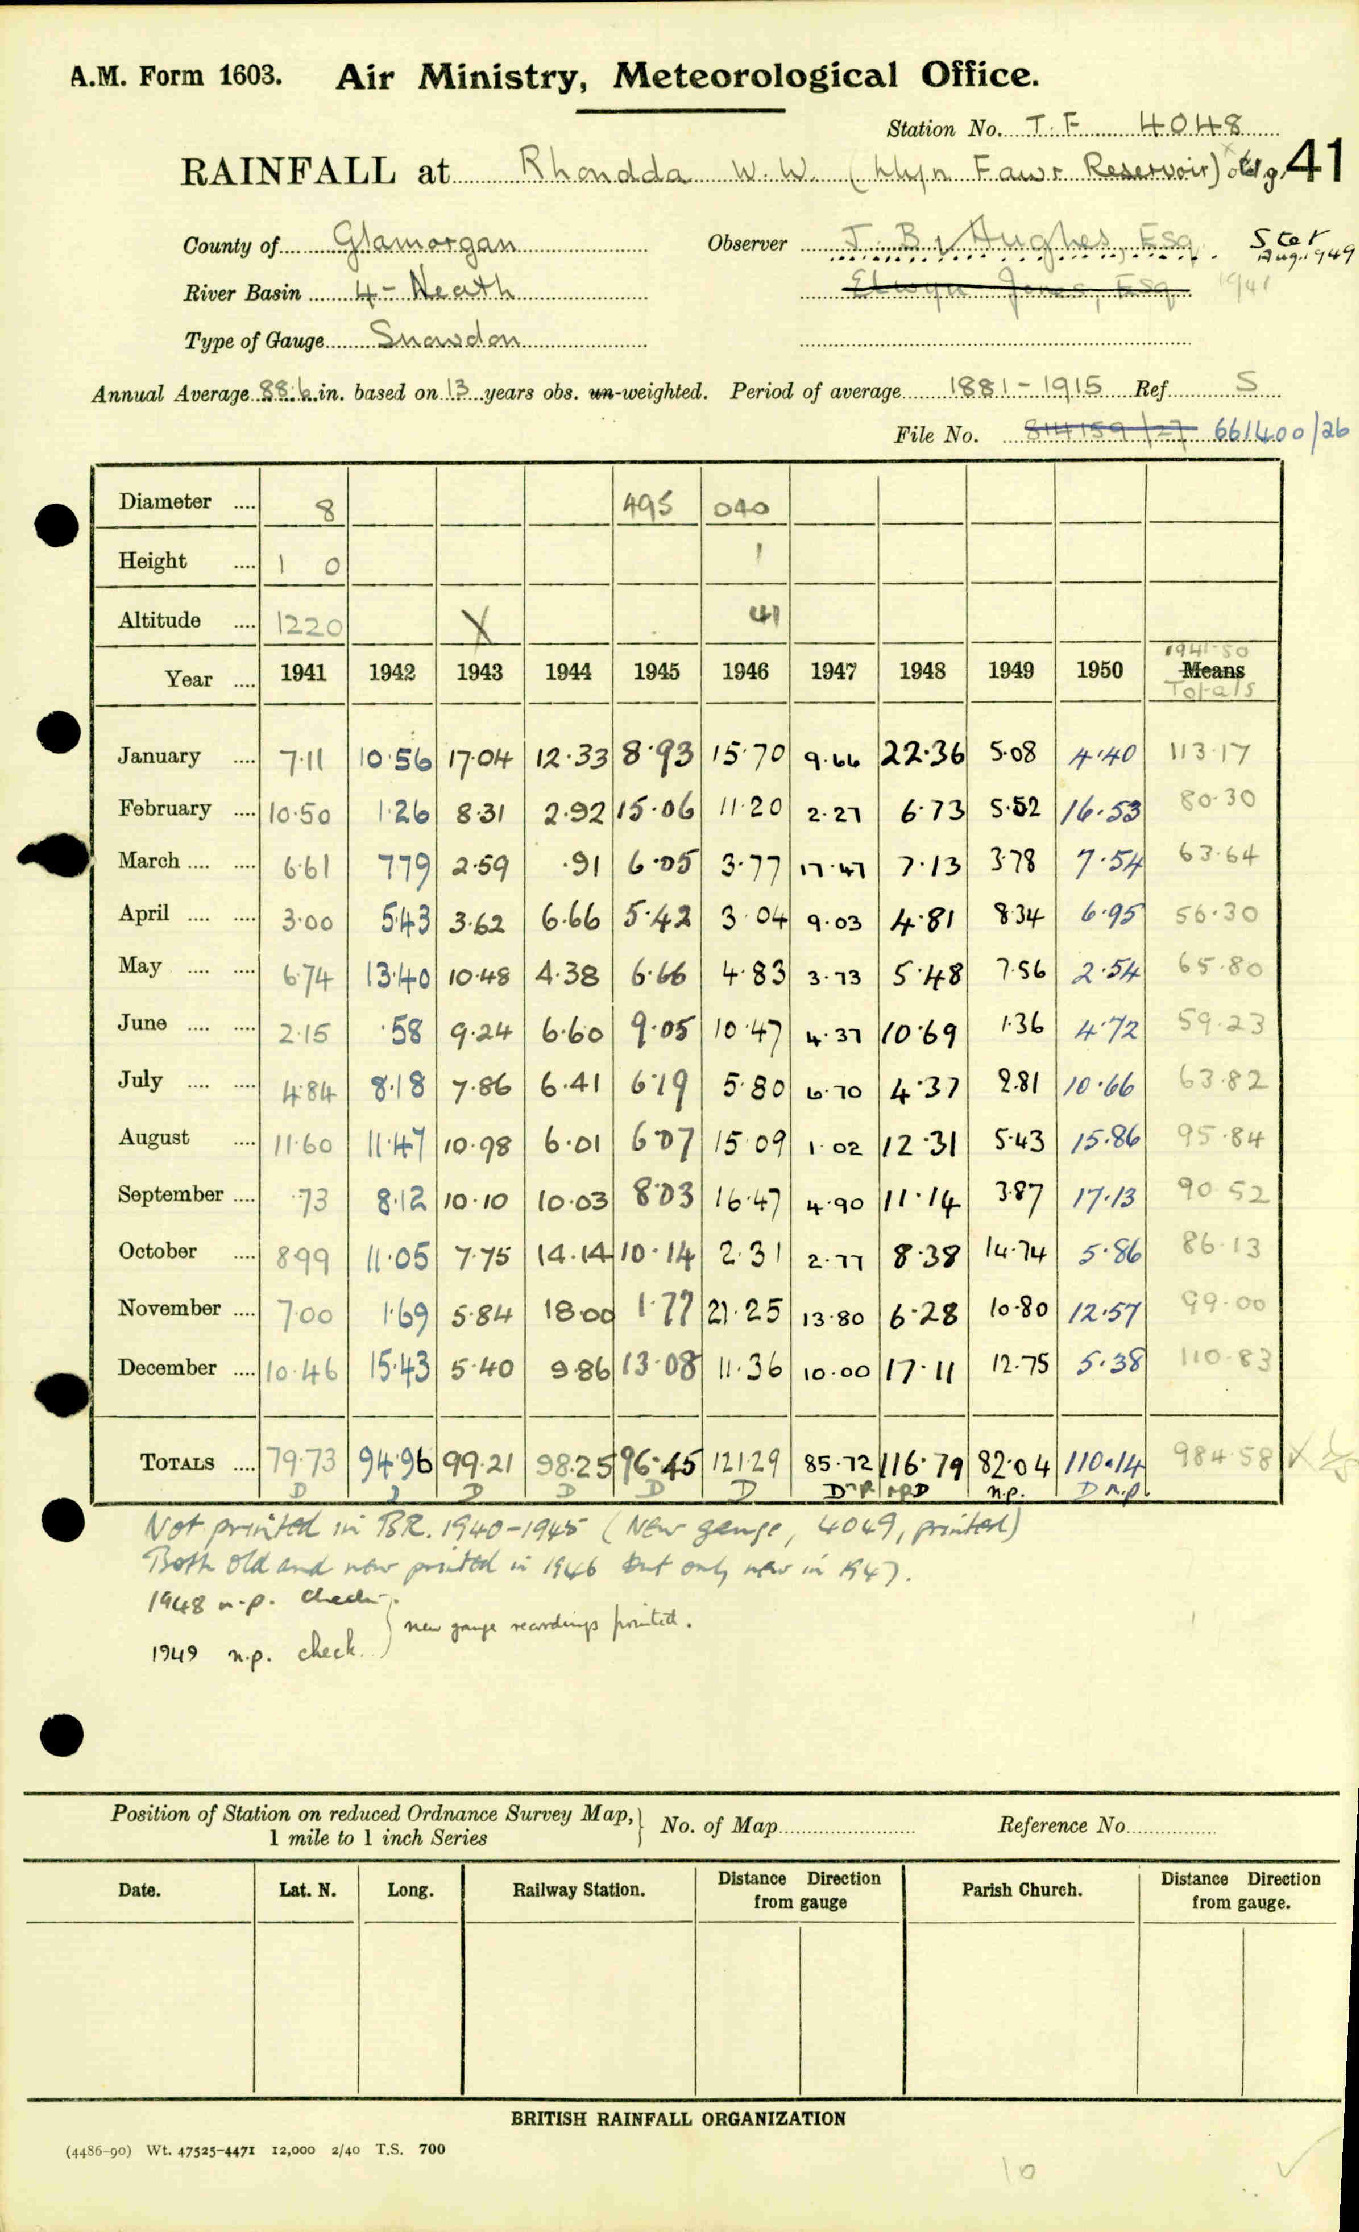 A.M. Form 1603. Air Ministry, Meteorological Office.
Station No. T.F. 4048
RAINFALL at Rhondda W.W. (Llyn Fawr Reservoir) old g. 41
County of Glamorgan Observer J. B. Hughes, Esq. Aug. 1949
River Basin 4 - Neath Elwyn Jones, Esq 1941
Type of Gauge Snowdon
Annual Average 88.6 in. based on 13 years obs. un-weighted. Period of average 1881-1915 Ref. S
File No. 814159/27 661400/26
Diameter .... 8 495 040
Height .... 1 0 1
Altitude .... 1220 X 41
Year .... 1941 1942 1943 1944 1945 1946 1947 1948 1949 1950 1941-50 Means Totals
January .... 7.11 10.56 17.04 12.33 8.93 15.70 9.66 22.36 5.08 4.40 113.17
February .... 10.50 1.26 8.31 2.92 15.06 11.20 2.27 6.73 5.52 16.53 80.30
March .... .... 6.61 7.79 2.59 .91 6.05 3.77 17.47 7.13 3.78 7.54 63.64
April .... .... 3.00 5.43 3.62 6.66 5.42 3.04 9.03 4.81 8.34 6.95 56.30
May .... .... 6.74 13.40 10.48 4.38 6.66 4.83 3.73 5.48 7.56 2.54 65.80
June .... .... 2.15 .58 9.24 6.60 9.05 10.47 4.37 10.69 1.36 4.72 59.23
July .... .... 4.84 8.18 7.86 6.41 6.19 5.80 6.70 4.37 2.81 10.66 63.82
August .... 11.60 11.47 10.98 6.01 6.07 15.09 1.02 12.31 5.43 15.86 95.84
September .... .73 8.12 10.10 10.03 8.03 16.47 4.90 11.14 3.87 17.13 90.52
October .... 8.99 11.05 7.75 14.14 10.14 2.31 2.77 8.38 14.74 5.86 86.13
November .... 7.00 1.69 5.84 18.00 1.77 21.25 13.80 6.28 10.80 12.57 99.00
December .... 10.46 15.43 5.40 9.86 13.08 11.36 10.00 17.11 12.75 5.38 110.83
TOTALS .... 79.73 94.96 99.21 98.25 96.45 121.29 85.72 116.79 82.04 110.14 984.58 X
D D D D D D n.p. D n.p.
Not printed in B.R. 1940-1945 (New gauge, 4049, printed)
Both old and new printed in 1946 but only new in 1947.
1948 n.p. check.
new gauge recordings printed.
1949 n.p. check.
Position of Station on reduced Ordnance Survey Map, 1 mile to 1 inch Series No. of Map Reference No.
Date. Lat. N. Long. Railway Station. Distance Direction from gauge Parish Church. Distance Direction from gauge.
BRITISH RAINFALL ORGANIZATION
(4486-90) Wt. 47525-4471 12,000 2/40 T.S. 700
10